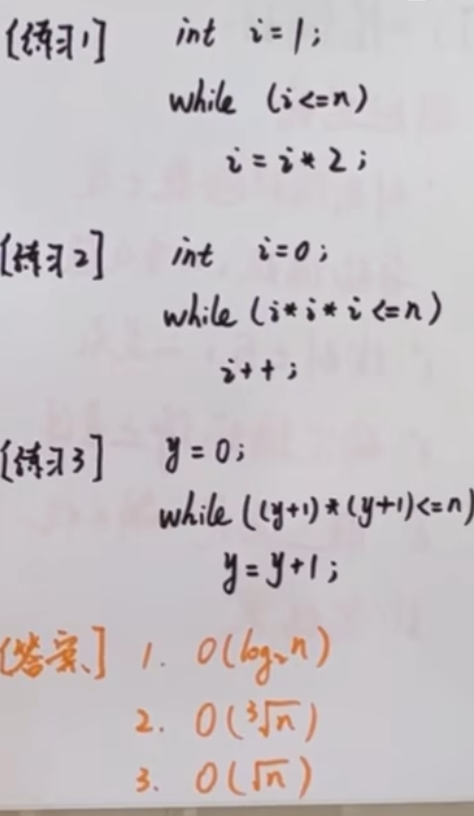 [练习1] int i=1;
while (i<=n)
i=i*2;
[练习2] int i=0;
while (i*i*i<=n)
i++;
[练习3] y=0;
while ((y+1)*(y+1)<=n)
y=y+1;
[答案] 1. O(log₂n)
2. O(³√n)
3. O(√n)